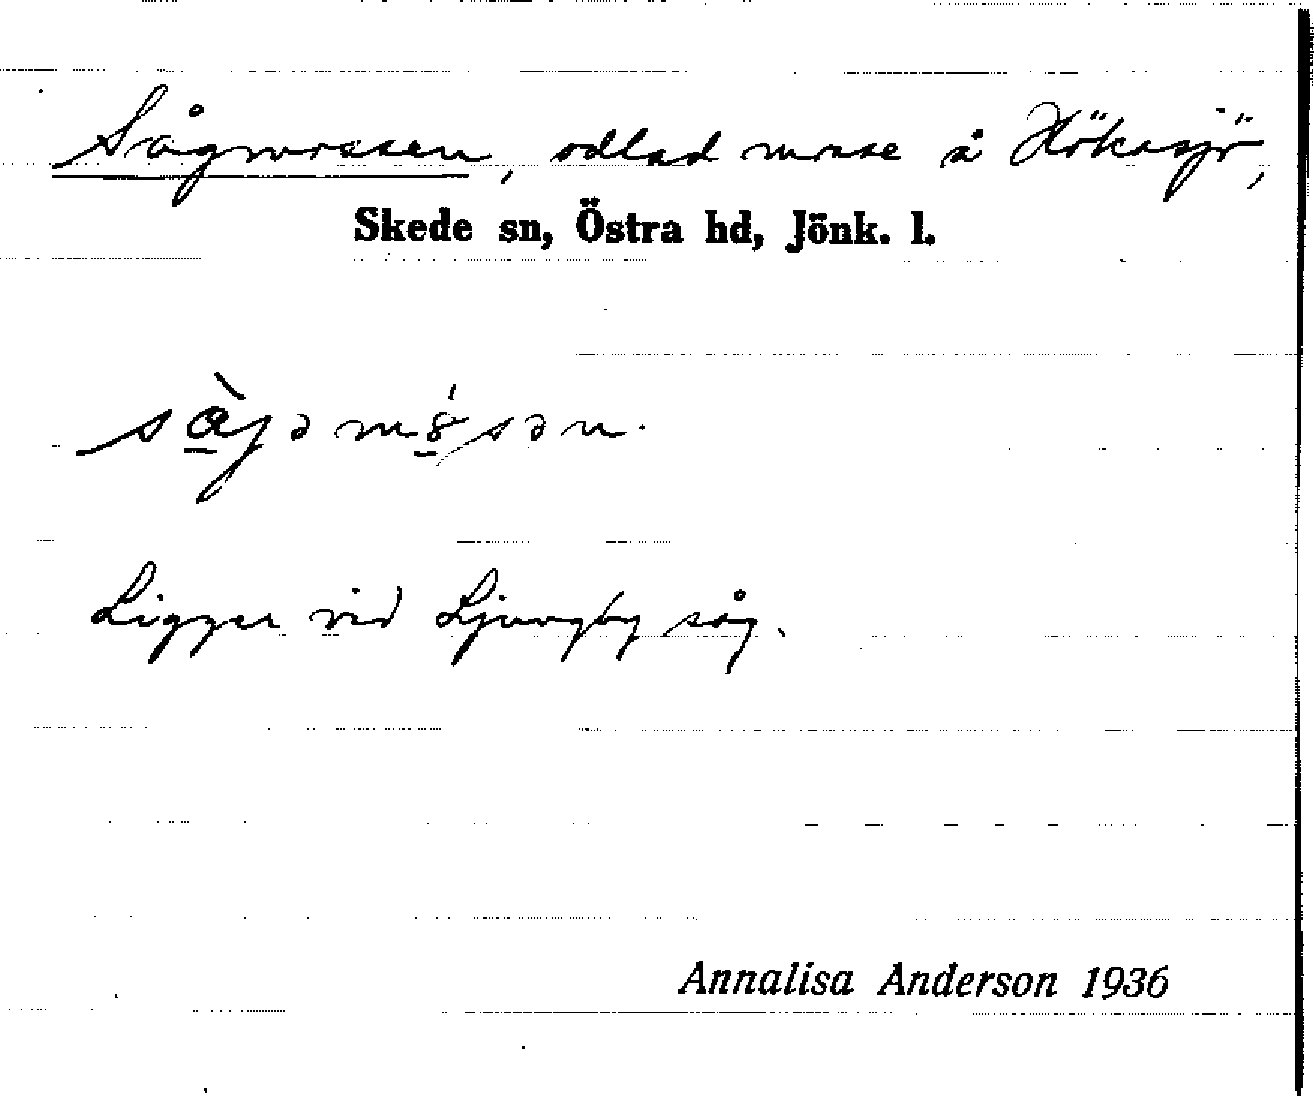 Sågmossen, odlad mosse å Hökasjö,
Skede sn, Östra hd, Jönk. l.
Ligger vid Ljungby såg.
Annalisa Anderson 1936